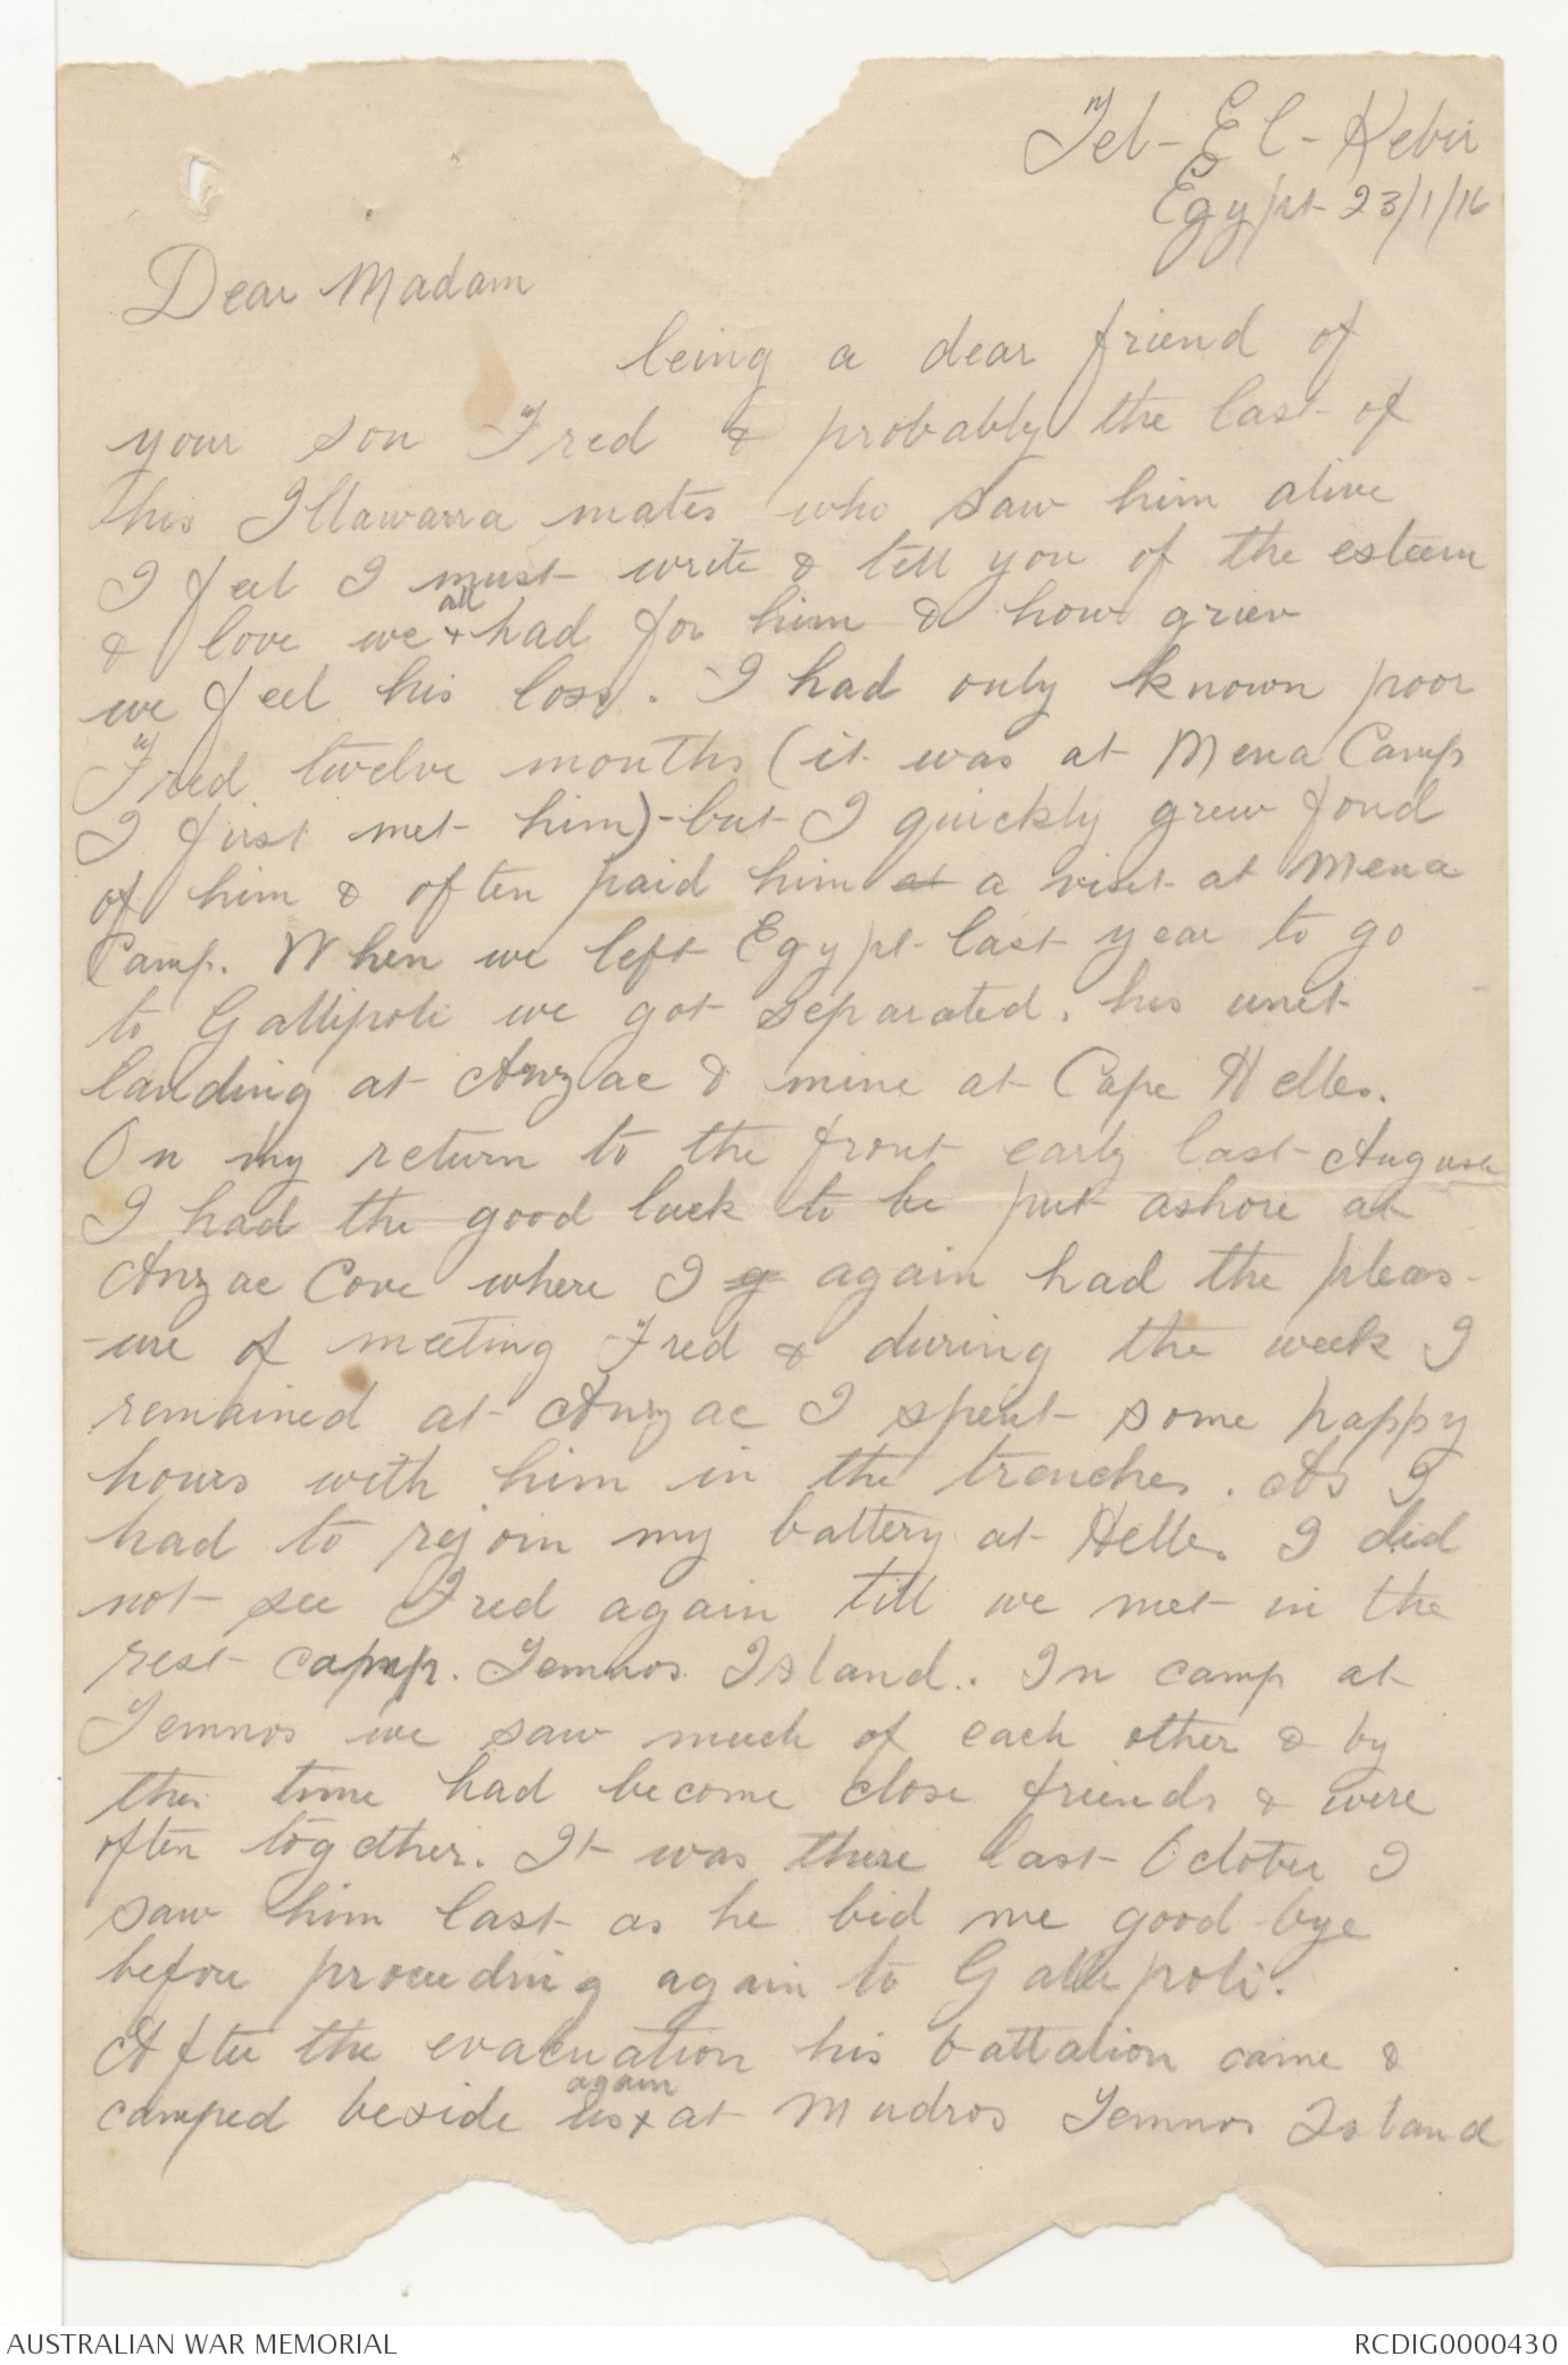 Tel-El-Kebir
Egypt 23/1/16
Dear Madam
being a dear friend of
your son Fred & probably the last of
his Illawarra mates who saw him alive
I feel I must write & tell you of the esteem
& love we all x had for him & how griev
we feel his loss. I had only known poor
Fred twelve months (it was at Mena Camp
I first met him)-but I quickly grew fond
of him & often paid him at a visit at Mena
Camp. When we left Egypt last year to go
to Gallipoli we got separated, his unit
landing at Anzac & mine at Cape Helles.
On my return to the front early last August
I had the good luck to be put ashore at
Anzac Cove where I g again had the pleas-
-ure of meeting Fred & during the week I
remained at Anzac I spent some happy
hours with him in the trenches. As I
had to rejoin my battery at Helles I did
not see Fred again till we met in the
rest camp. Lemnos Island. In camp at
Lemnos we saw much of each other & by
this time had become close friends & were
often together. It was there last October I
saw him last as he bid me good bye
before proceeding again to Gallipoli.
After the evacuation his battalion came &
camped beside us x again at Mudros Lemnos Island
AUSTRALIAN WAR MEMORIAL
RCDIG0000430